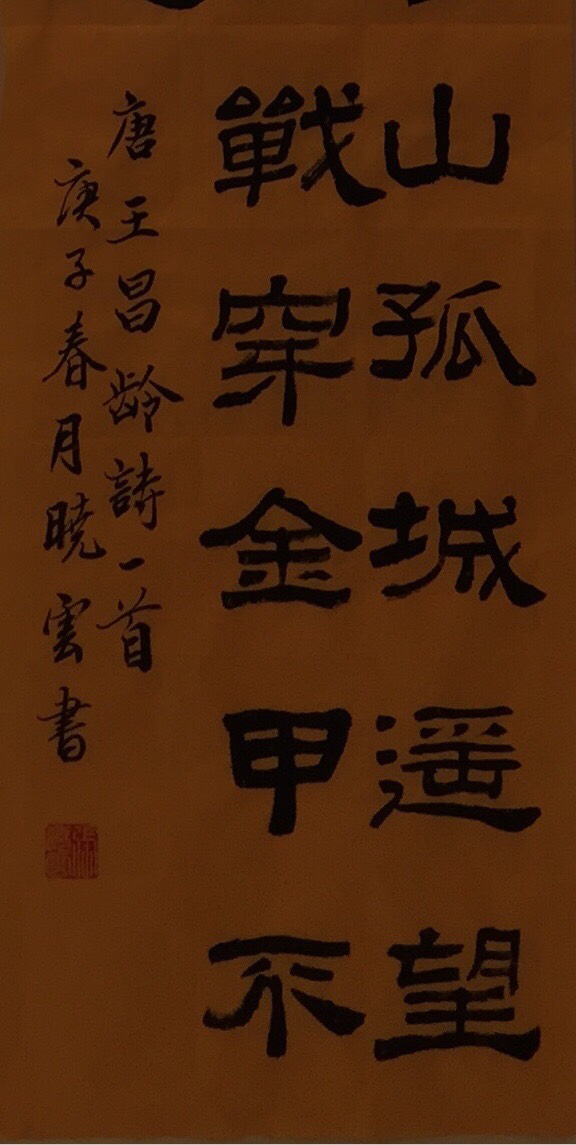 山孤城遥望
戰穿金甲不
唐王昌齡詩一首
庚子春月曉雲書